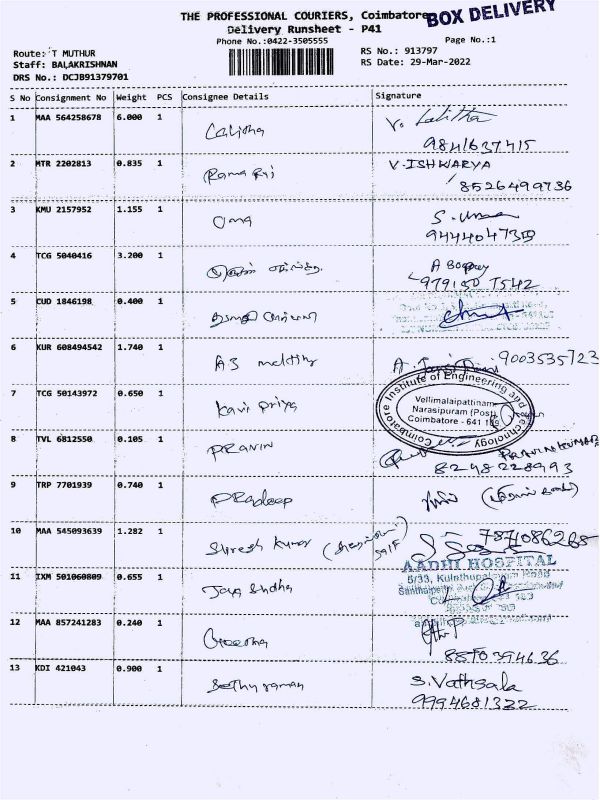 THE PROFESSIONAL COURIERS, Coimbatore
BOX DELIVERY
Delivery Runsheet - P41
Phone No.:0422-3505555
Page No.:1
Route: T MUTHUR
RS No.: 913797
Staff: BALAKRISHNAN
RS Date: 29-Mar-2022
DRS No.: DCJB91379701
S No Consignment No Weight PCS Consignee Details Signature
1 MAA 564258678 6.000 1 Lalitha V. Lalitha
9841637415
2 MTR 2202813 0.835 1 Rama Raj V-ISHWARYA
8526499736
3 KMU 2157952 1.155 1 Uma S. Uma
9444047359
4 TCG 5040416 3.200 1
5 CUD 1846198 0.400 1
6 KUR 608494542 1.740 1 A3 9003535723
7 TCG 50143972 0.650 1 Kavi Priya
Coimbatore Institute of Engineering and Technology
Vellimalaipattinam
Narasipuram (Post)
Coimbatore - 641 109
8 TVL 6812550 0.105 1 PRAVIN PRAVINKUMAR
8248228993
9 TRP 7701939 0.740 1 PRadeep
10 MAA 545093639 1.282 1 Suresh Kumar 7871086268
11 IXM 501060809 0.655 1 Jaya Sudha AADHI HOSPITAL
12 MAA 857241283 0.240 1 Geetha
8870394636
13 KDI 421043 0.900 1 Sethu raman S. Vathsala
9994681322